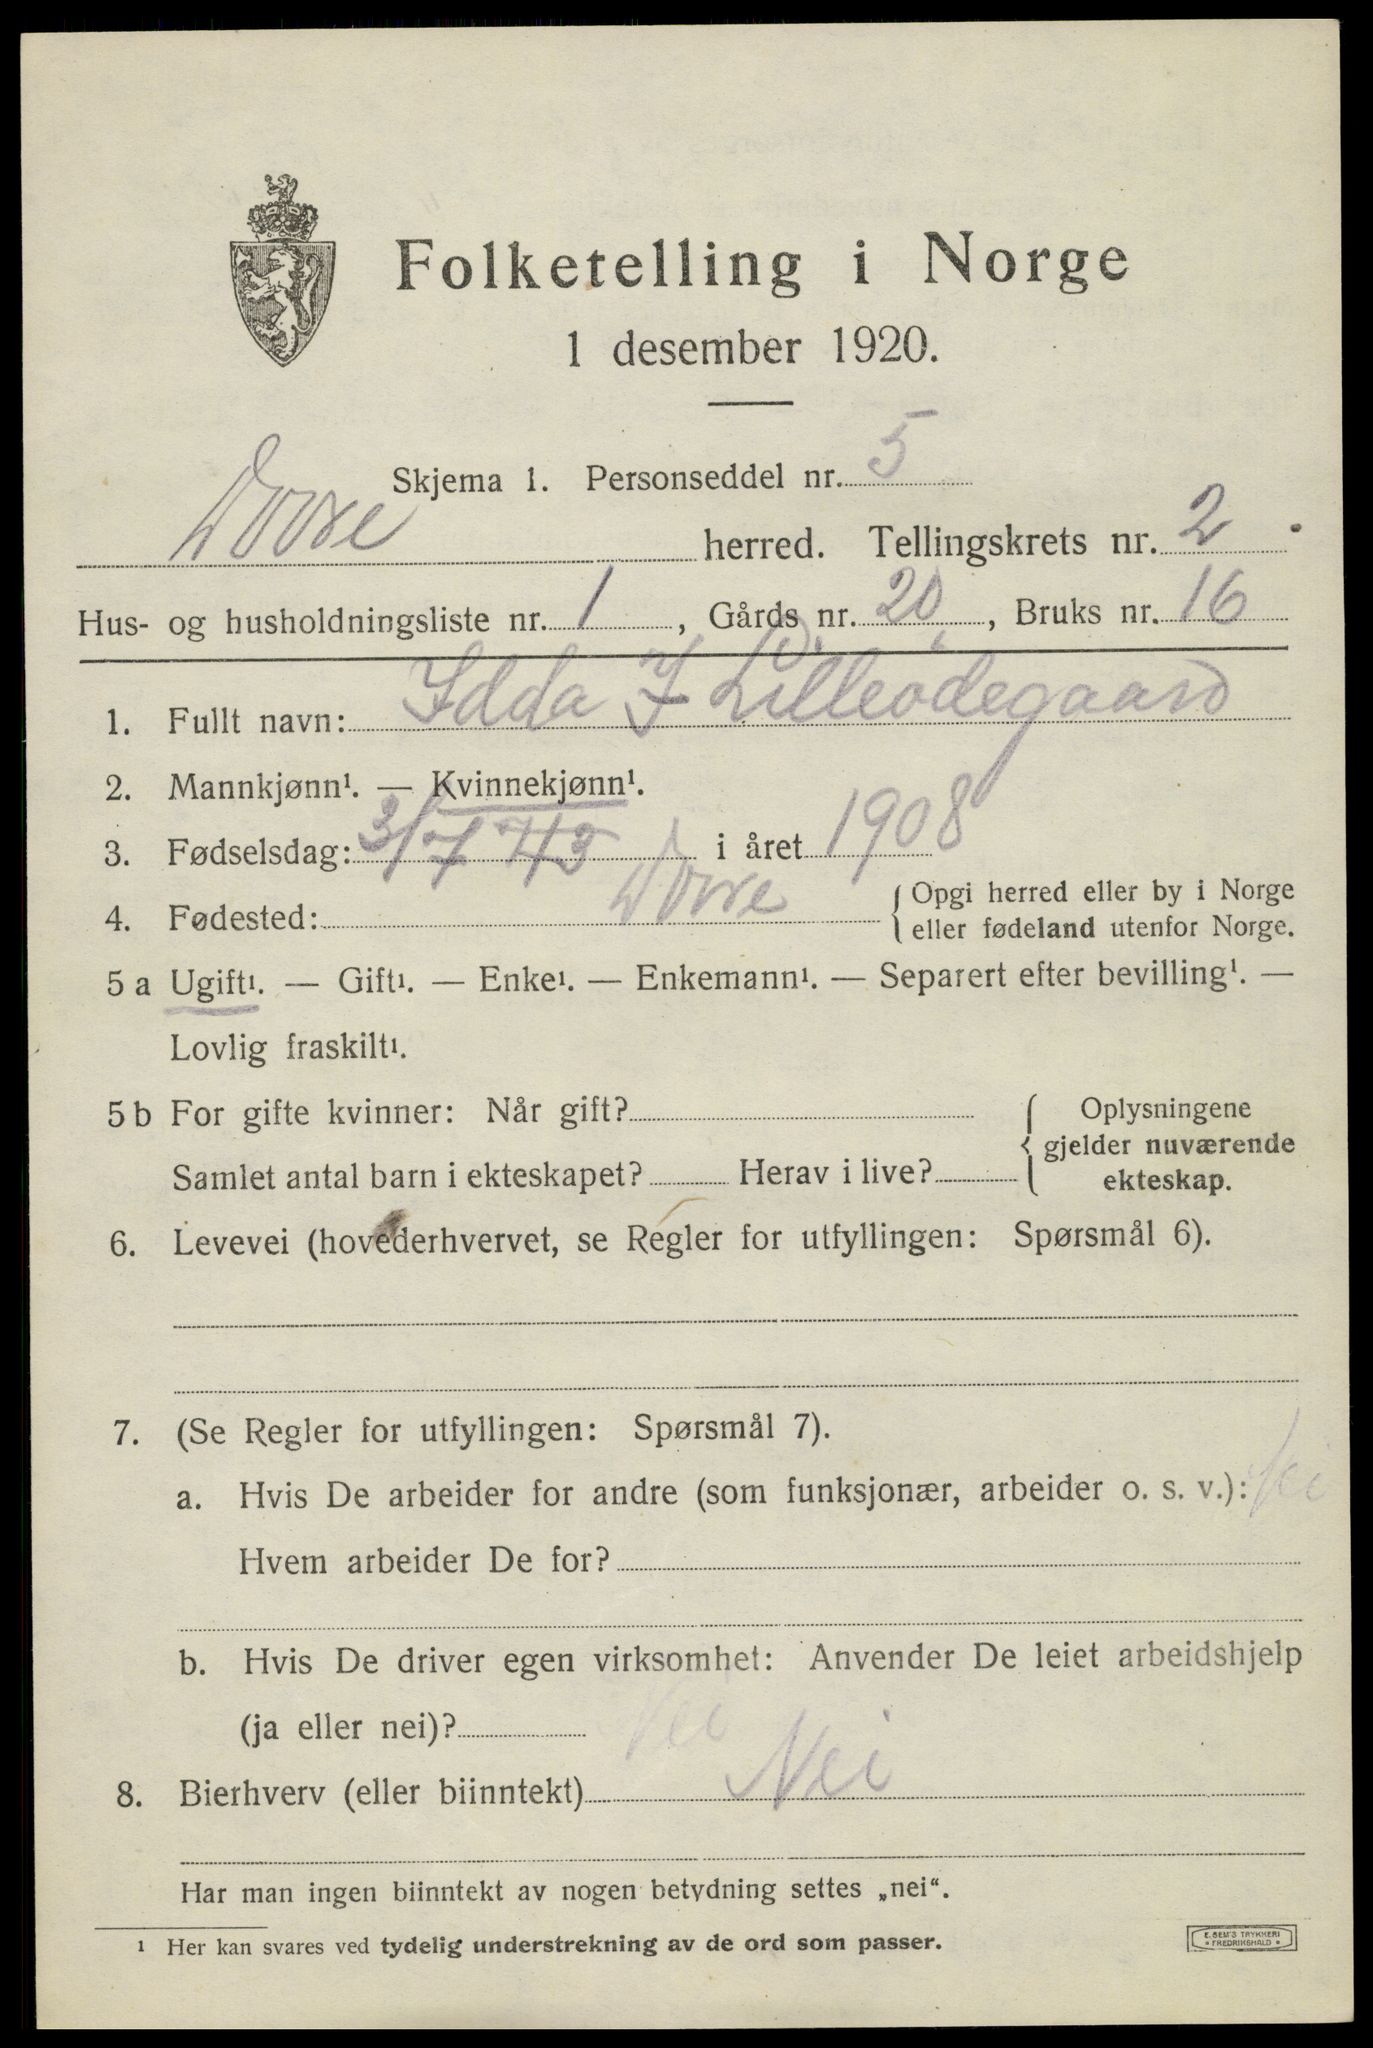 Folketelling i Norge
1 desember 1920.
Skjema 1. Personseddel nr. 5
Dovre herred. Tellingskrets nr. 2.
Hus- og husholdningsliste nr. 1, Gårds nr. 20, Bruks nr. 16
1. Fullt navn: Idda J D. Lilleødegaard
2. Mannkjønn¹. — Kvinnekjønn¹.
3. Fødselsdag: 3/7 i året 1908
4. Fødested: Dovre { Opgi herred eller by i Norge
eller fødeland utenfor Norge.
5 a Ugift¹. — Gift¹. — Enke¹. — Enkemann¹. — Separert efter bevilling¹. —
Lovlig fraskilt¹.
5 b For gifte kvinner: Når gift?
Samlet antal barn i ekteskapet? Herav i live?
Oplysningene
gjelder nuværende
ekteskap.
6. Levevei (hovederhvervet, se Regler for utfyllingen: Spørsmål 6).
7. (Se Regler for utfyllingen: Spørsmål 7).
a. Hvis De arbeider for andre (som funksjonær, arbeider o. s. v.): Nei
Hvem arbeider De for?
b. Hvis De driver egen virksomhet: Anvender De leiet arbeidshjelp
(ja eller nei)? Nei
8. Bierhverv (eller biinntekt) Nei
Har man ingen biinntekt av nogen betydning settes „nei“.
¹ Her kan svares ved tydelig understrekning av de ord som passer.
E. SEM'S TRYKKERI
• FREDRIKSHALD •